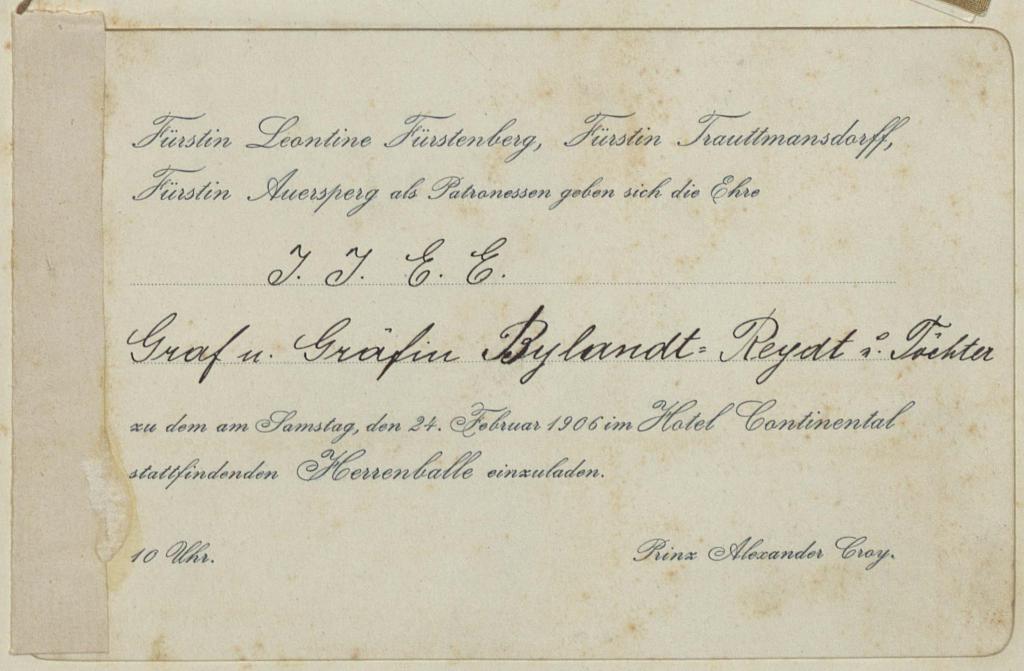 Fürstin Leontine Fürstenberg, Fürstin Trauttmansdorff,
Fürstin Auersperg als Patronessen geben sich die Ehre
J. J. E. E.
Graf u. Gräfin Bylandt=Reydt u. Töchter
zu dem am Samstag, den 24. Februar 1906 im Hotel Continental
stattfindenden Herrenballe einzuladen.
10 Uhr.
Prinz Alexander Croy.